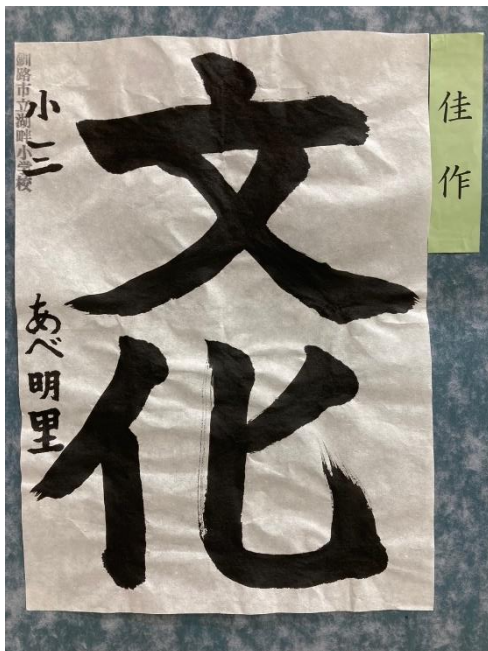 佳作
文化
釧路市立湖畔小学校
小三
あべ明里